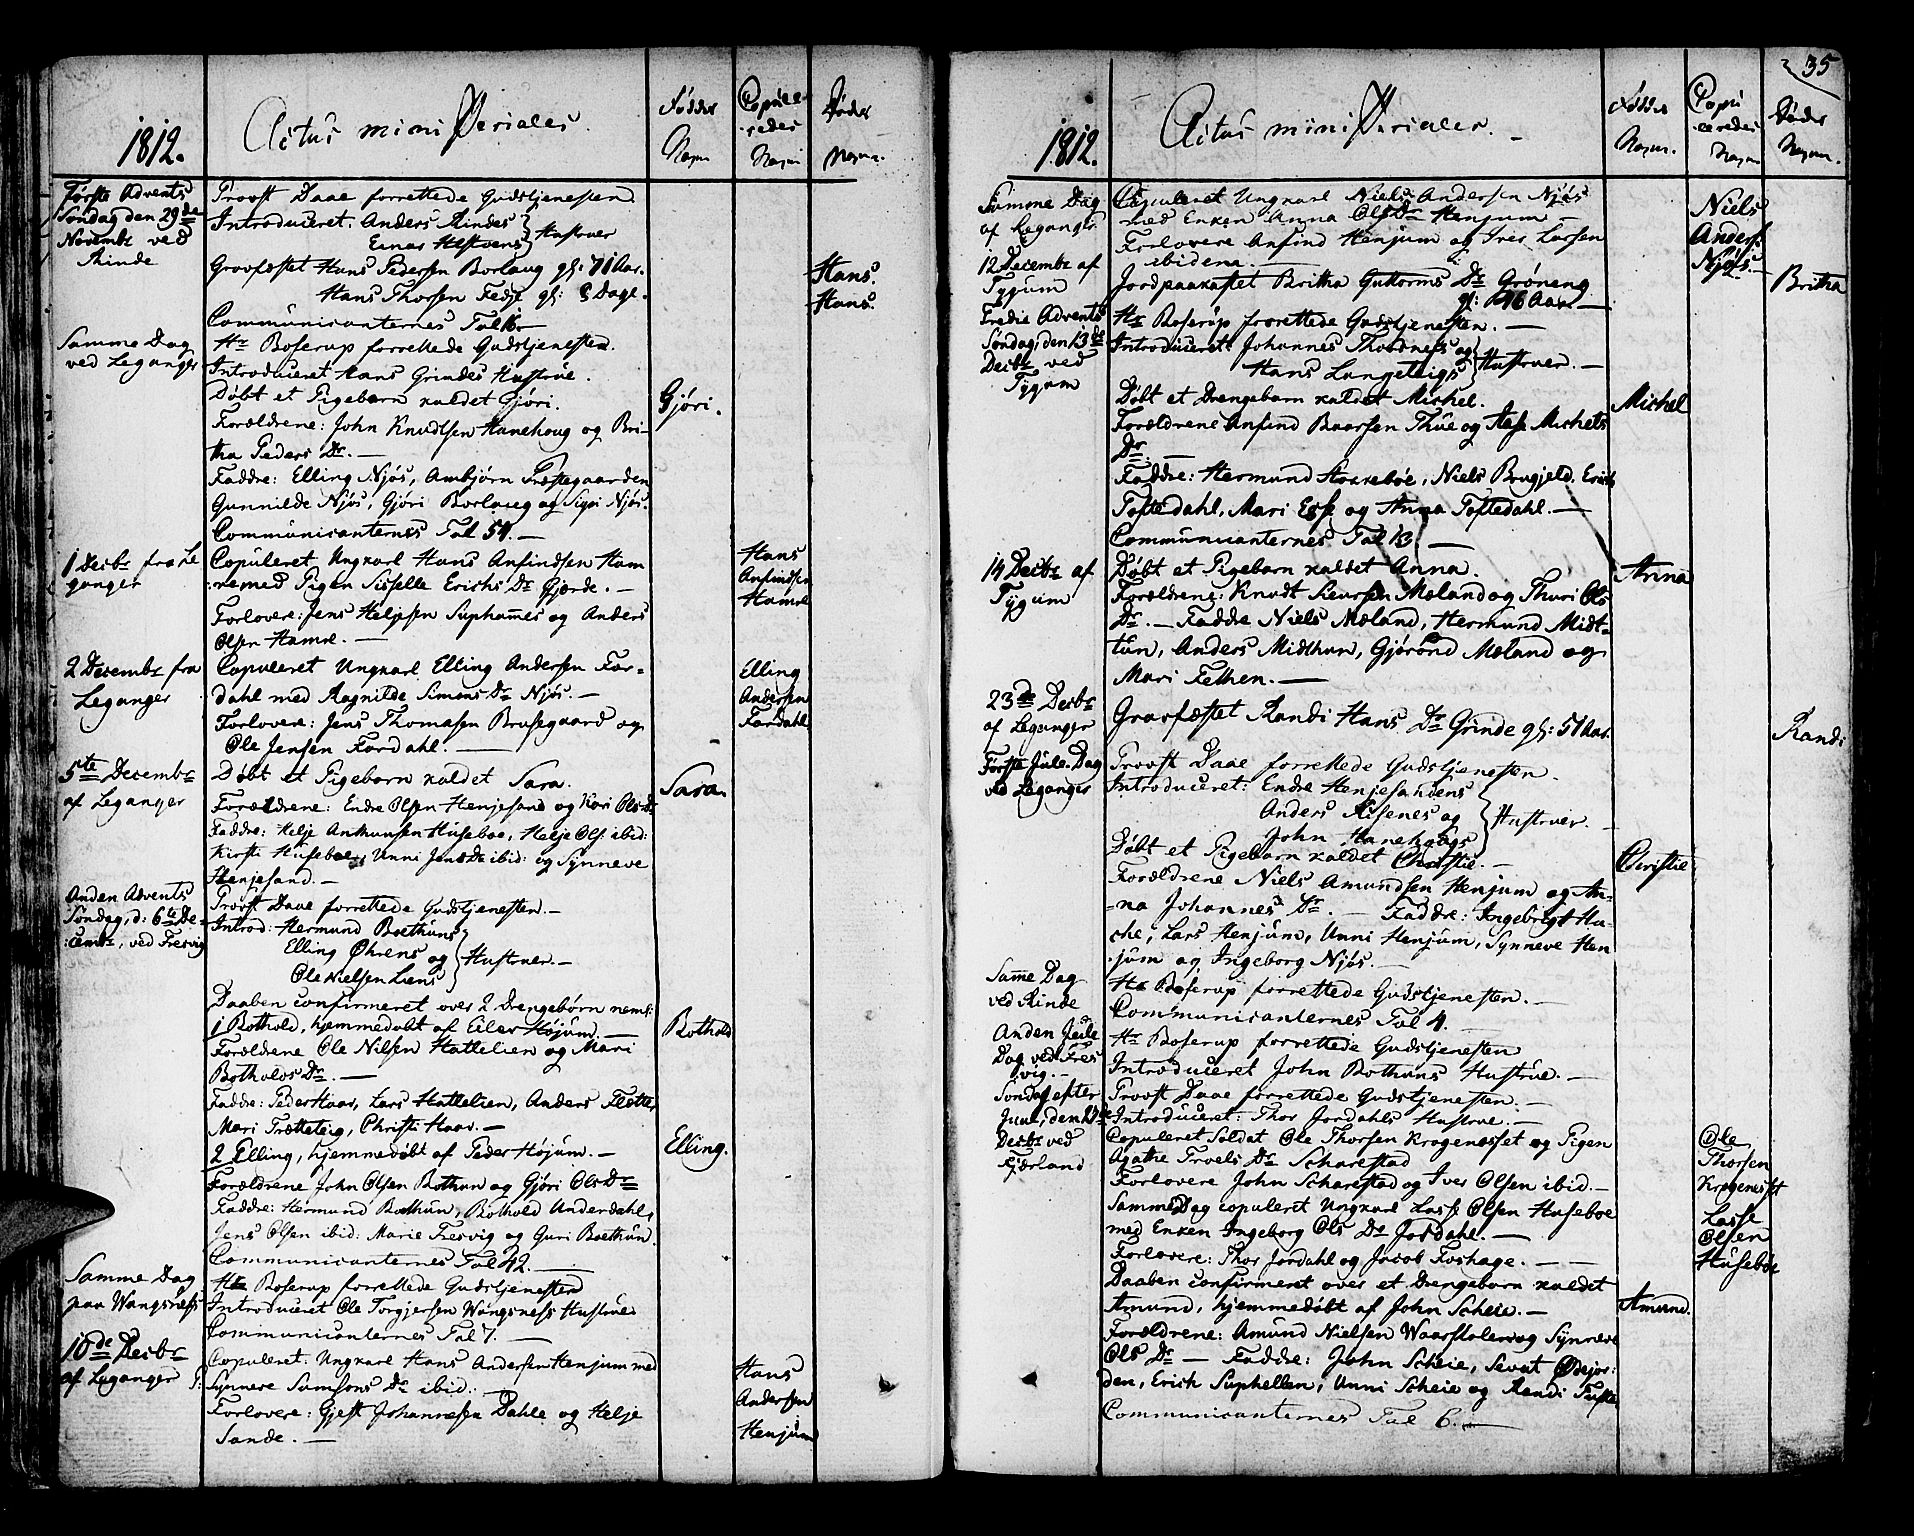 1812.
Actus ministeriales.
Fødder
Nagn
Copule-
redes
Nagn
Døder
Nagn.
Første Advents
Søndag den 29de
Novembr ved
Rinde
Provst Daae forrettede Gudstjenesten.
Introduceret: Anders Rindes
Einar Hestvens } Hustruer
Gravfæstet Hans Pedersen Borlaug gl: 71 Aar.
Hans.
Hans Thorsen Fedje gl: 8 Dage.
Hans.
Communicanternes Tal
Samme Dag
ved Leganger
Hr Boserup forrettede Gudstjenesten.
Introduceret Hans Grindes Hustrue.
Døbt et Pigebarn kaldet Gjøri.
Gjøri.
Forældrene: John Knudtsen Hanehoug og Bri-
tha Peders Dr. —
Faddre: Elling Njøs, Ambjørn Præstegaarden
Gunnilde Njøs, Gjøri Borlaug og Sigri Njøs.
Communicanternes Tal 54. —
1 Decbr fra Le
ganger
Copuleret Ungkarl Hans Anfindsen Ham
re med Pigen Sisselle Erichs Dr Gjerde. —
Forlovere: Jens Heljesen Suphammes og Anders
Olsen Hamre. —
Hans
Anfindsen
Hamre
2 Decembr fra
Leganger
Copuleret Ungkarl Elling Andersen For-
dahl med Ragnilde Simons Dr Njøs. —
Forlovere: Jens Thomasen Brusegaard og
Ole Jensen Fordahl. —
Elling
Andersen
Fordahl
5te Decembr
af Leganger
Døbt et Pigebarn kaldet Sara.
Sara.
Forældrene: Endre Olsen Henjesand og Kari Ols Dr
Faddre: Helje Ankunsen Huseboe, Helje Ols. ibid:
Kirsti Huseboe, Unni Jens Dr ibid: og Synneve
Henjesand. —
Anden Advents
Søndag, d: 6te De-
cembr, ved Fresvig
Provst Daae forrettede Gudstjenesten. —
Introd: Hermund Boethuns
Elling Øhrens og
Ole Nielsen Liens } Hustruer. —
Daaben confirmeret over 2 Drengebørn neml:
1 Bothold, hjemmedøbt af Eilev Højum. —
Bothold
Forældrene Ole Nilsen Hattelien og Mari
Botholds Dr. —
Faddre: Peder Haar, Lars Hattelien, Anders Flotte,
Mari Trætteteig, Christi Haar. —
2 Elling, hjemmedøbt af Peder Højum. —
Elling.
Forældrene John Olsen Bothun og Gjøri Ols Dr
Faddre: Hermund Bothun, Bothold Underdahl,
Jens Olsen ibid: Marie Fresvig og Guri Boethun.
Communicanternes Tal 42. —
Samme Dag
paa Wangsness
Hr Boserup forrettede Gudstjenesten
Introduceret Ole Torgjersen Wangsness Hustrue
Communicanternes Tal 7. —
10de Decbr
af Leganger
Copuleret. Ungkarl Hans Andersen Henjum med
P: Synneve Samsons Dr ibid. —
Forlovere: Gjest Johannesen Dahle og Helje
Sande. —
Hans
Andersen
Henjum
35
1812.
Actus ministeriales. —
Fødder
Nagn.
Copu
leredes
Nagn
Døder
Nagn.
Samme Dag
af Leganger
Copuleret Ungkarl Niels Andersen Njøs
med Enken Anna Ols Dr Henjum —
Forlovere Anfind Henjum og Iver Larsen
ibidem. —
Niels
Anders.
Njøs.
12 Decembr af
Tygum
Jordpaakastet Britha Guttorms Dr Grøneng
gl: 76 Aar —
Britha
Tredie Advents
Søndag, den 13de
Decbr ved
Tygum
Hr Boserup forrettede Gudstjenesten. —
Introduceret Johannes Thordness og
Hans Langeteigs } Hustruer. —
Døbt et Drengebarn kaldet Michel.
Michel
Forældrene Anfind Baarsen Thue og Aase Michels
Dr. —
Faddre: Hermund Horrebøe, Niels Brugjeld, Erich
Toftedahl, Mari Esse og Anna Toftedahl. —
Communicanternes Tal 13. —
14 Decbr af
Tygum
Døbt et Pigebarn kaldet Anna.
Anna
Forældrene: Knudt Siursen Mæland og Thuri Ols
Dr. — Faddre Niels Mæland, Hermund Midt-
tun, Anders Midthun, Gjørond Mæland og
Mari Felhen. —
23de Decbr
af Leganger
Gravfæstet Randi Hans Dr Grinde gl: 51 Aar.
Randi
Første Jule-Dag
ved Leganger
Provst Daae forrettede Gudstjenesten.
Introduceret: Endre Henjesandens
Anders Risenes og
John Hanehougs } Hustruer. —
Døbt et Pigebarn kaldet Christie. —
Christie
Forældrene Niels Amundsen Henjum og An-
na Johannes Dr. — Faddre: Ingebrigt Hu-
che, Lars Henjum, Unni Henjum, Synneve Hen
jum og Ingeborg Njøs. —
Samme Dag
ved Rinde
Hr Boserup forrettede Gudstjenesten. —
Communicanternes Tal 4. —
Anden Jule
Dag ved Fres
vig. —
Hr Boserup forrettede Gudstjenesten
Introduceret John Bothuns Hustrue. —
Søndag efter
Juul, den 27de
Decbr ved
Fjærland
Provst Daae forrettede Gudstjenesten. —
Introduceret: Thor Jordahls Hustrue. —
Copuleret Soldat Ole Thorsen Krogenesset og Pigen
Agathe Troels Dr Scharestad
Forlovere John Scharestad og Iver Olsen ibid. —
Ole
Thorsen
Krogenesset
Samme Dag copuleret Ungkarl Lasse Olsen Huseboe
med Enken Ingeborg Ols Dr Jordahl. —
Forlovere: Thor Jordahl og Jacob Foshage. —
Lasse
Olsen
Huseboe
Daaben confirmeret over et Drengebarn kaldet
Amund, hjemmedøbt af John Scheie. —
Amund.
Forældrene: Amund Nielsen Waarstolen og Synneve
Ols Dr — Faddre: John Scheie, Sevat Ødejor-
den, Erich Suphellen, Unni Scheie og Randi Tufte
Communicanternes Tal 6. —